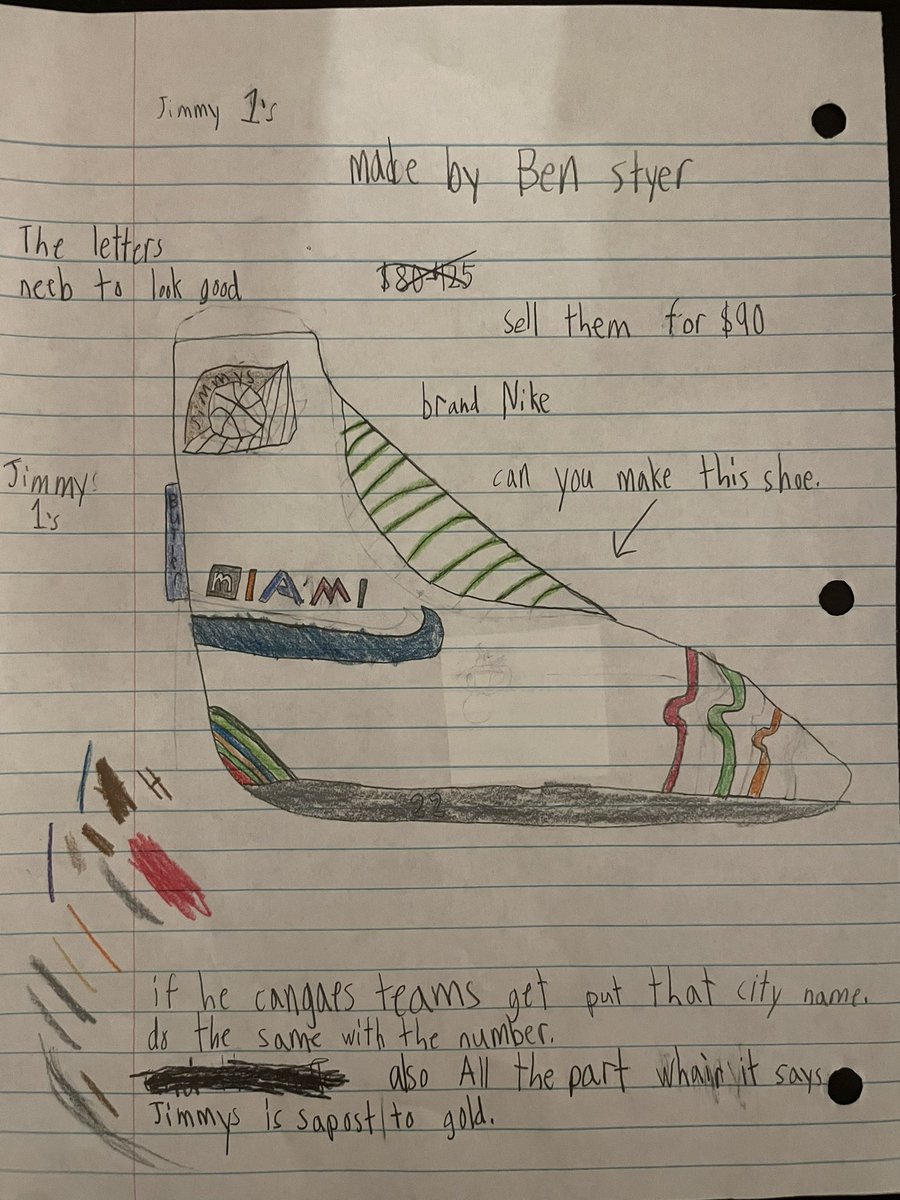 Jimmy 1's
made by Ben styer
The letters
neeb to look good
$80-$125
sell them for $90
brand Nike
Jimmys
can you make this shoe.
Jimmys
1's
BUTler
MIAMI
22
if he cangaes teams get put that city name.
do the same with the number.
also All the part whair it says
Jimmys is sapost to gold.